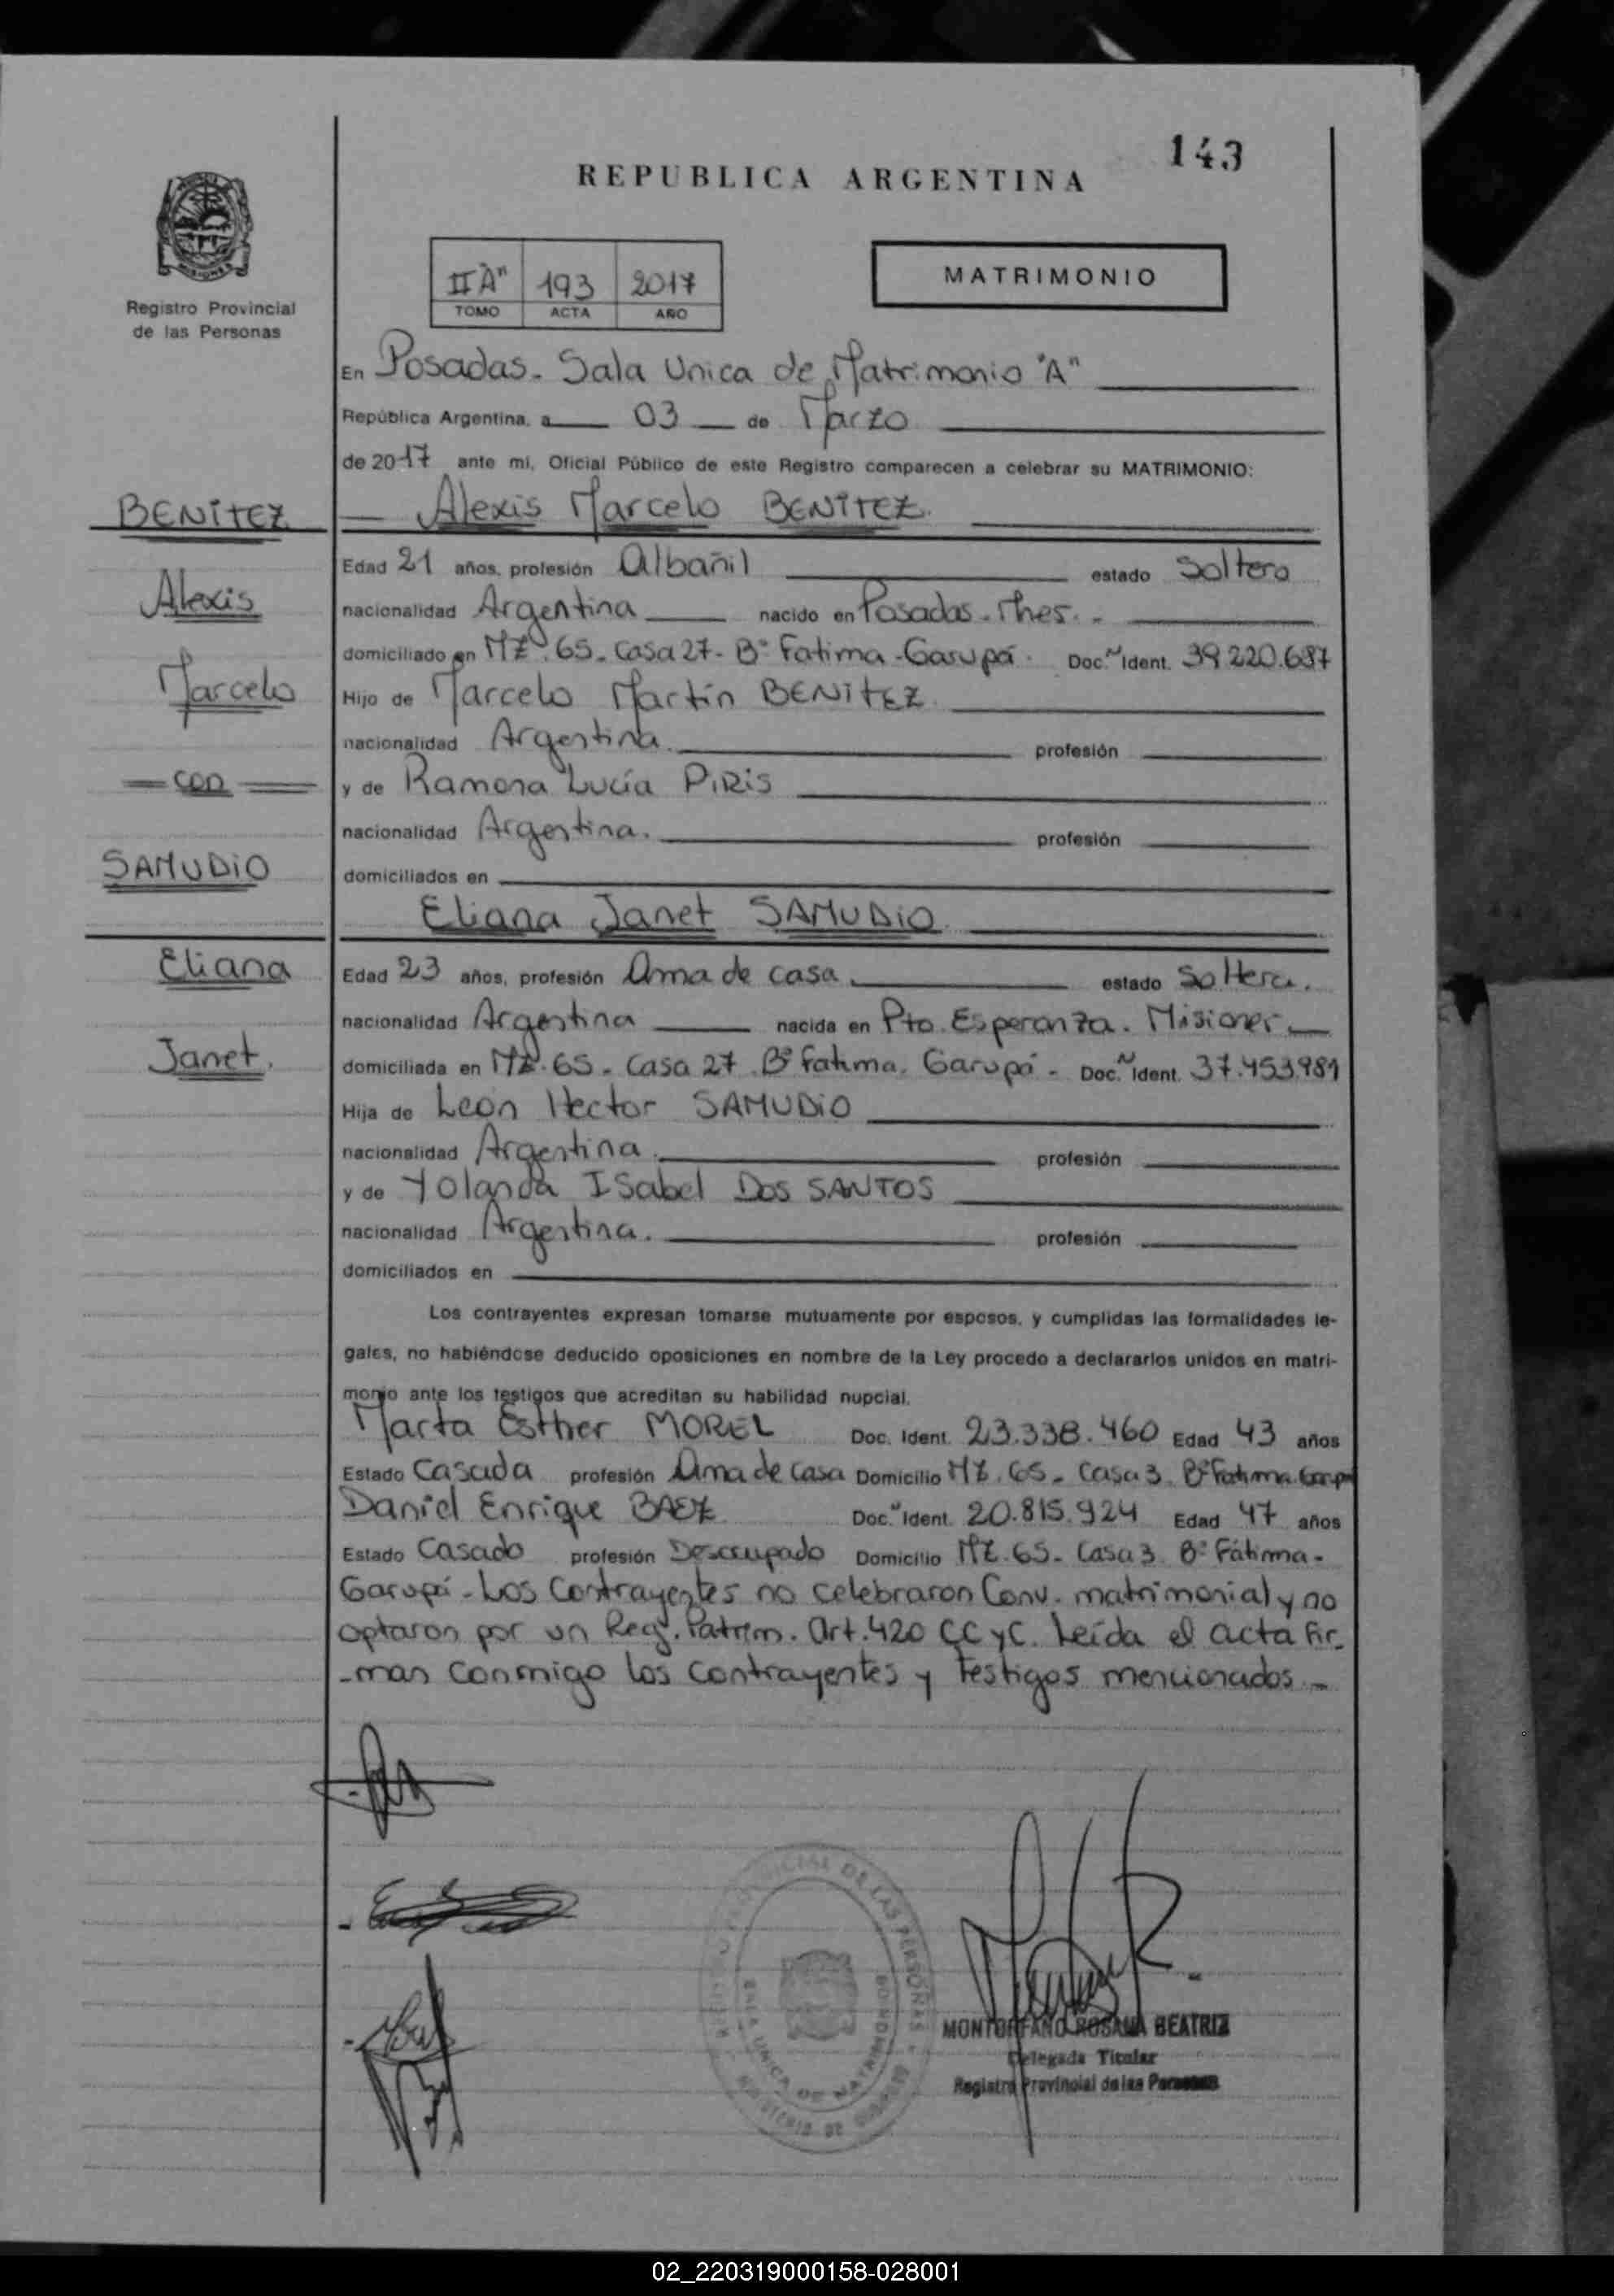 143
REPUBLICA ARGENTINA
MISIONES
Registro Provincial
de las Personas
II "A" 193 2017
TOMO ACTA AÑO
MATRIMONIO
En Posadas - Sala Unica de Matrimonio "A"
República Argentina, a 03 de Marzo
de 2017 ante mi, Oficial Público de este Registro comparecen a celebrar su MATRIMONIO:
BENITEZ
Alexis Marcelo BENITEZ.
Edad 21 años, profesión Albañil estado Soltero
Alexis
nacionalidad Argentina nacido en Posadas - Mnes. -
domiciliado en MZ. 65 - Casa 27 - B° Fatima - Garupá. Doc. N Ident. 39.220.687
Marcelo
Hijo de Marcelo Martín BENITEZ.
nacionalidad Argentina. profesión
= con =
y de Ramona Lucía PIRIS
nacionalidad Argentina. profesión
SAMUDIO
domiciliados en
Eliana Janet SAMUDIO
Eliana
Edad 23 años, profesión Ama de casa. estado Soltera.
nacionalidad Argentina nacida en Pto. Esperanza. Misiones
Janet.
domiciliada en MZ. 65 - Casa 27 B° Fatima. Garupá - Doc. N Ident. 37.453.981
Hija de Leon Hector SAMUDIO
nacionalidad Argentina. profesión
y de Yolanda Isabel DOS SANTOS
nacionalidad Argentina. profesión
domiciliados en
Los contrayentes expresan tomarse mutuamente por esposos, y cumplidas las formalidades le-
gales, no habiéndose deducido oposiciones en nombre de la Ley procedo a declararlos unidos en matri-
monio ante los testigos que acreditan su habilidad nupcial.
Marta Esther MOREL Doc. Ident. 23.338.460 Edad 43 años
Estado Casada profesión Ama de casa Domicilio MZ. 65 - Casa 3. B° Fatima. Garupá
Daniel Enrique BAEZ Doc. N Ident. 20.815.924 Edad 47 años
Estado Casado profesión Desocupado Domicilio MZ. 65 - Casa 3. B° Fátima -
Garupá - Los Contrayentes no celebraron Conv. matrimonial y no
optaron por un Reg. Patrim. Art. 420 CC y C. Leída el acta fir-
-man conmigo los contrayentes y testigos mencionados -
MONTORFANO ROSANA BEATRIZ
Delegada Titular
Registro Provincial de las Personas
DE LAS PERSONAS
SALA UNICA DE MATRIMONIO
MINISTERIO DE GOBIERNO
02_220319000158-028001